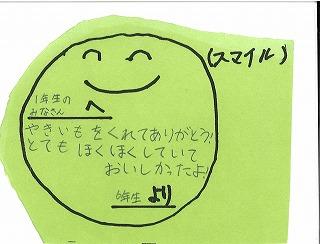 (スマイル)
1年生の
みなさん
へ
やきいもをくれてありがとう!
とても ほくほくしていて
おいしかったよ!
6年生 より